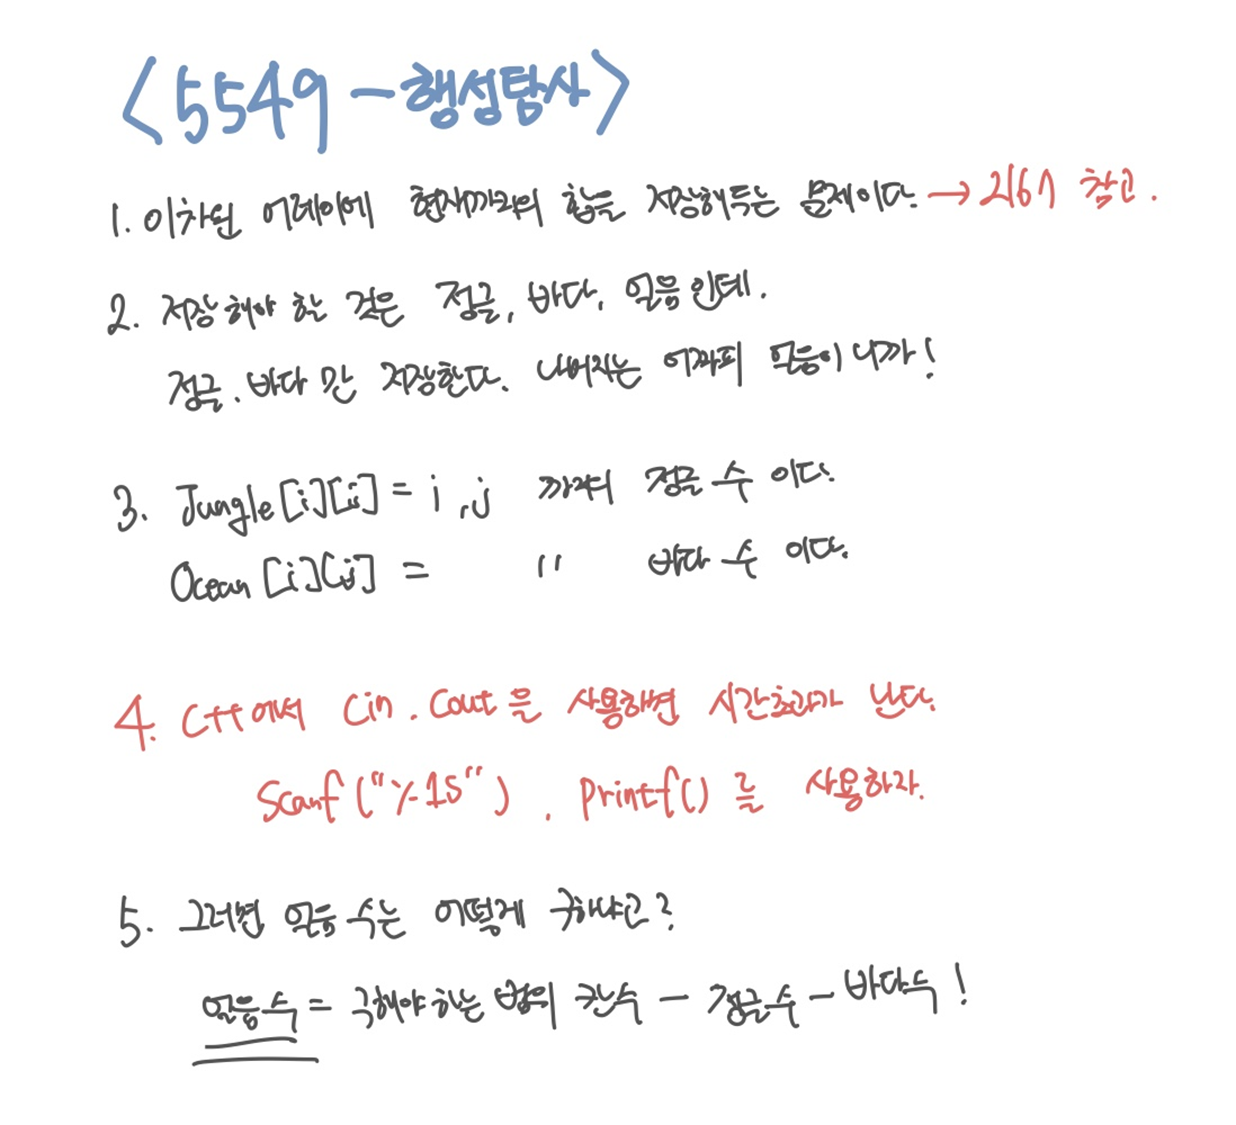 <5549 - 행성탐사>
1. 이차원 어레이에 현재까지의 합을 저장해두는 문제이다. → 2167 참고.
2. 저장해야 할 것은 정글, 바다, 얼음인데.
정글, 바다만 저장한다. 나머지는 어짜피 얼음이니까!
3. Jungle[i][j] = i, j 까지 정글 수 이다.
Ocean[i][j] = " 바다 수 이다.
4. C++에서 Cin, Cout을 사용하면 시간초과가 난다.
Scanf("%1s"), Printf()를 사용하자.
5. 그러면 얼음 수는 어떻게 구하냐고?
얼음수 = 구해야하는 범위 칸수 - 정글수 - 바다수!